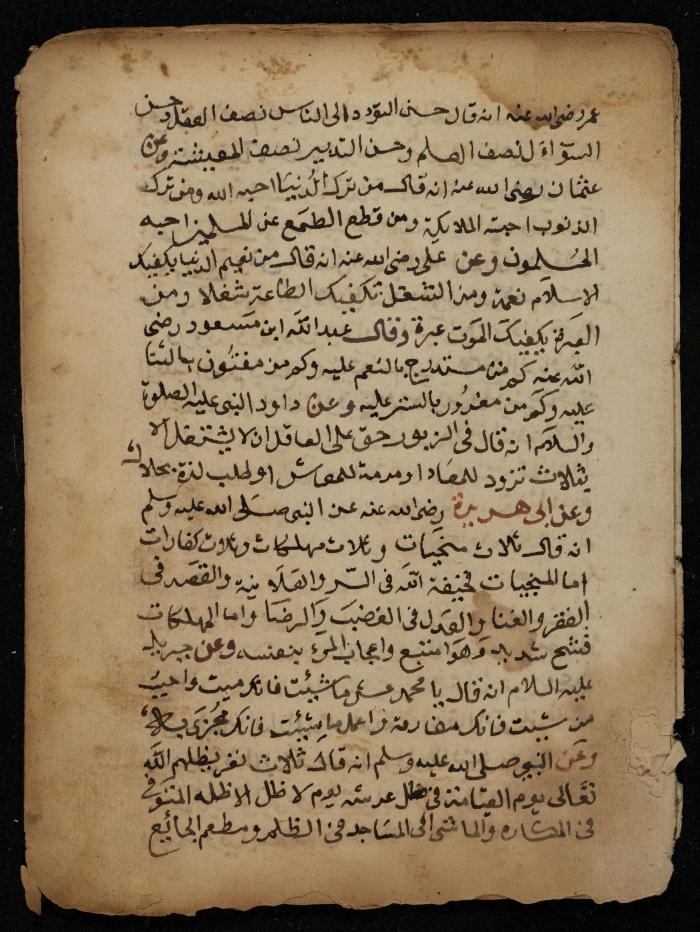 عمر رضى الله عنه انه قال حسن التودد الى الناس نصف العقل وحسن
السؤال نصف العلم وحسن التدبير نصف المعيشة وعن
عثمان رضى الله عنه انه قال من ترك الدنيا احبه الله ومن ترك
الذنوب احبته الملايكة ومن قطع الطمع عن المسلمين احبه
المسلمون وعن على رضى الله عنه انه قال من نعيم الدنيا يكفيك
الاسلام نعمة ومن الشغل تكفيك الطاعة شغلا ومن
العبرة يكفيك الموت عبرة وقال عبد الله ابن مسعود رضى
الله عنه كم من مستدرج بالنعم عليه وكم من مفتون بالثنا
عليه وكم من مغرور بالستر عليه وعن داود النبى عليه الصلوة
والسلام انه قال فى الزبور حق على العاقل ان لا يشتغل الا
بثلاث تزود للمعاد او مرمة للمعاش او طلب لذة بحلال
وعن ابى هريرة رضى الله عنه عن النبى صلى الله عليه وسلم
انه قال ثلاث منجيات وثلاث مهلكات وثلاث كفارات
اما المنجيات فخيفة الله فى السر والعلانية والقصد فى
الفقر والغنا والعدل فى الغضب والرضا واما المهلكات
فشح شديد وهوا متبع واعجاب المرء بنفسه وعن جبريل
عليه السلام انه قال يا محمد عش ما شيئت فانك ميت واحبب
من شيت فانك مفارقه واعمل ما شيئت فانك مجزى به
وعن النبى صلى الله عليه وسلم انه قال ثلاث نفر يظلهم الله
تعالى يوم القيامة فى ظل عرشه يوم لا ظل الا ظله المتوضى
فى المكاره والماشى الى المساجد فى الظلم ومطعم الجائع